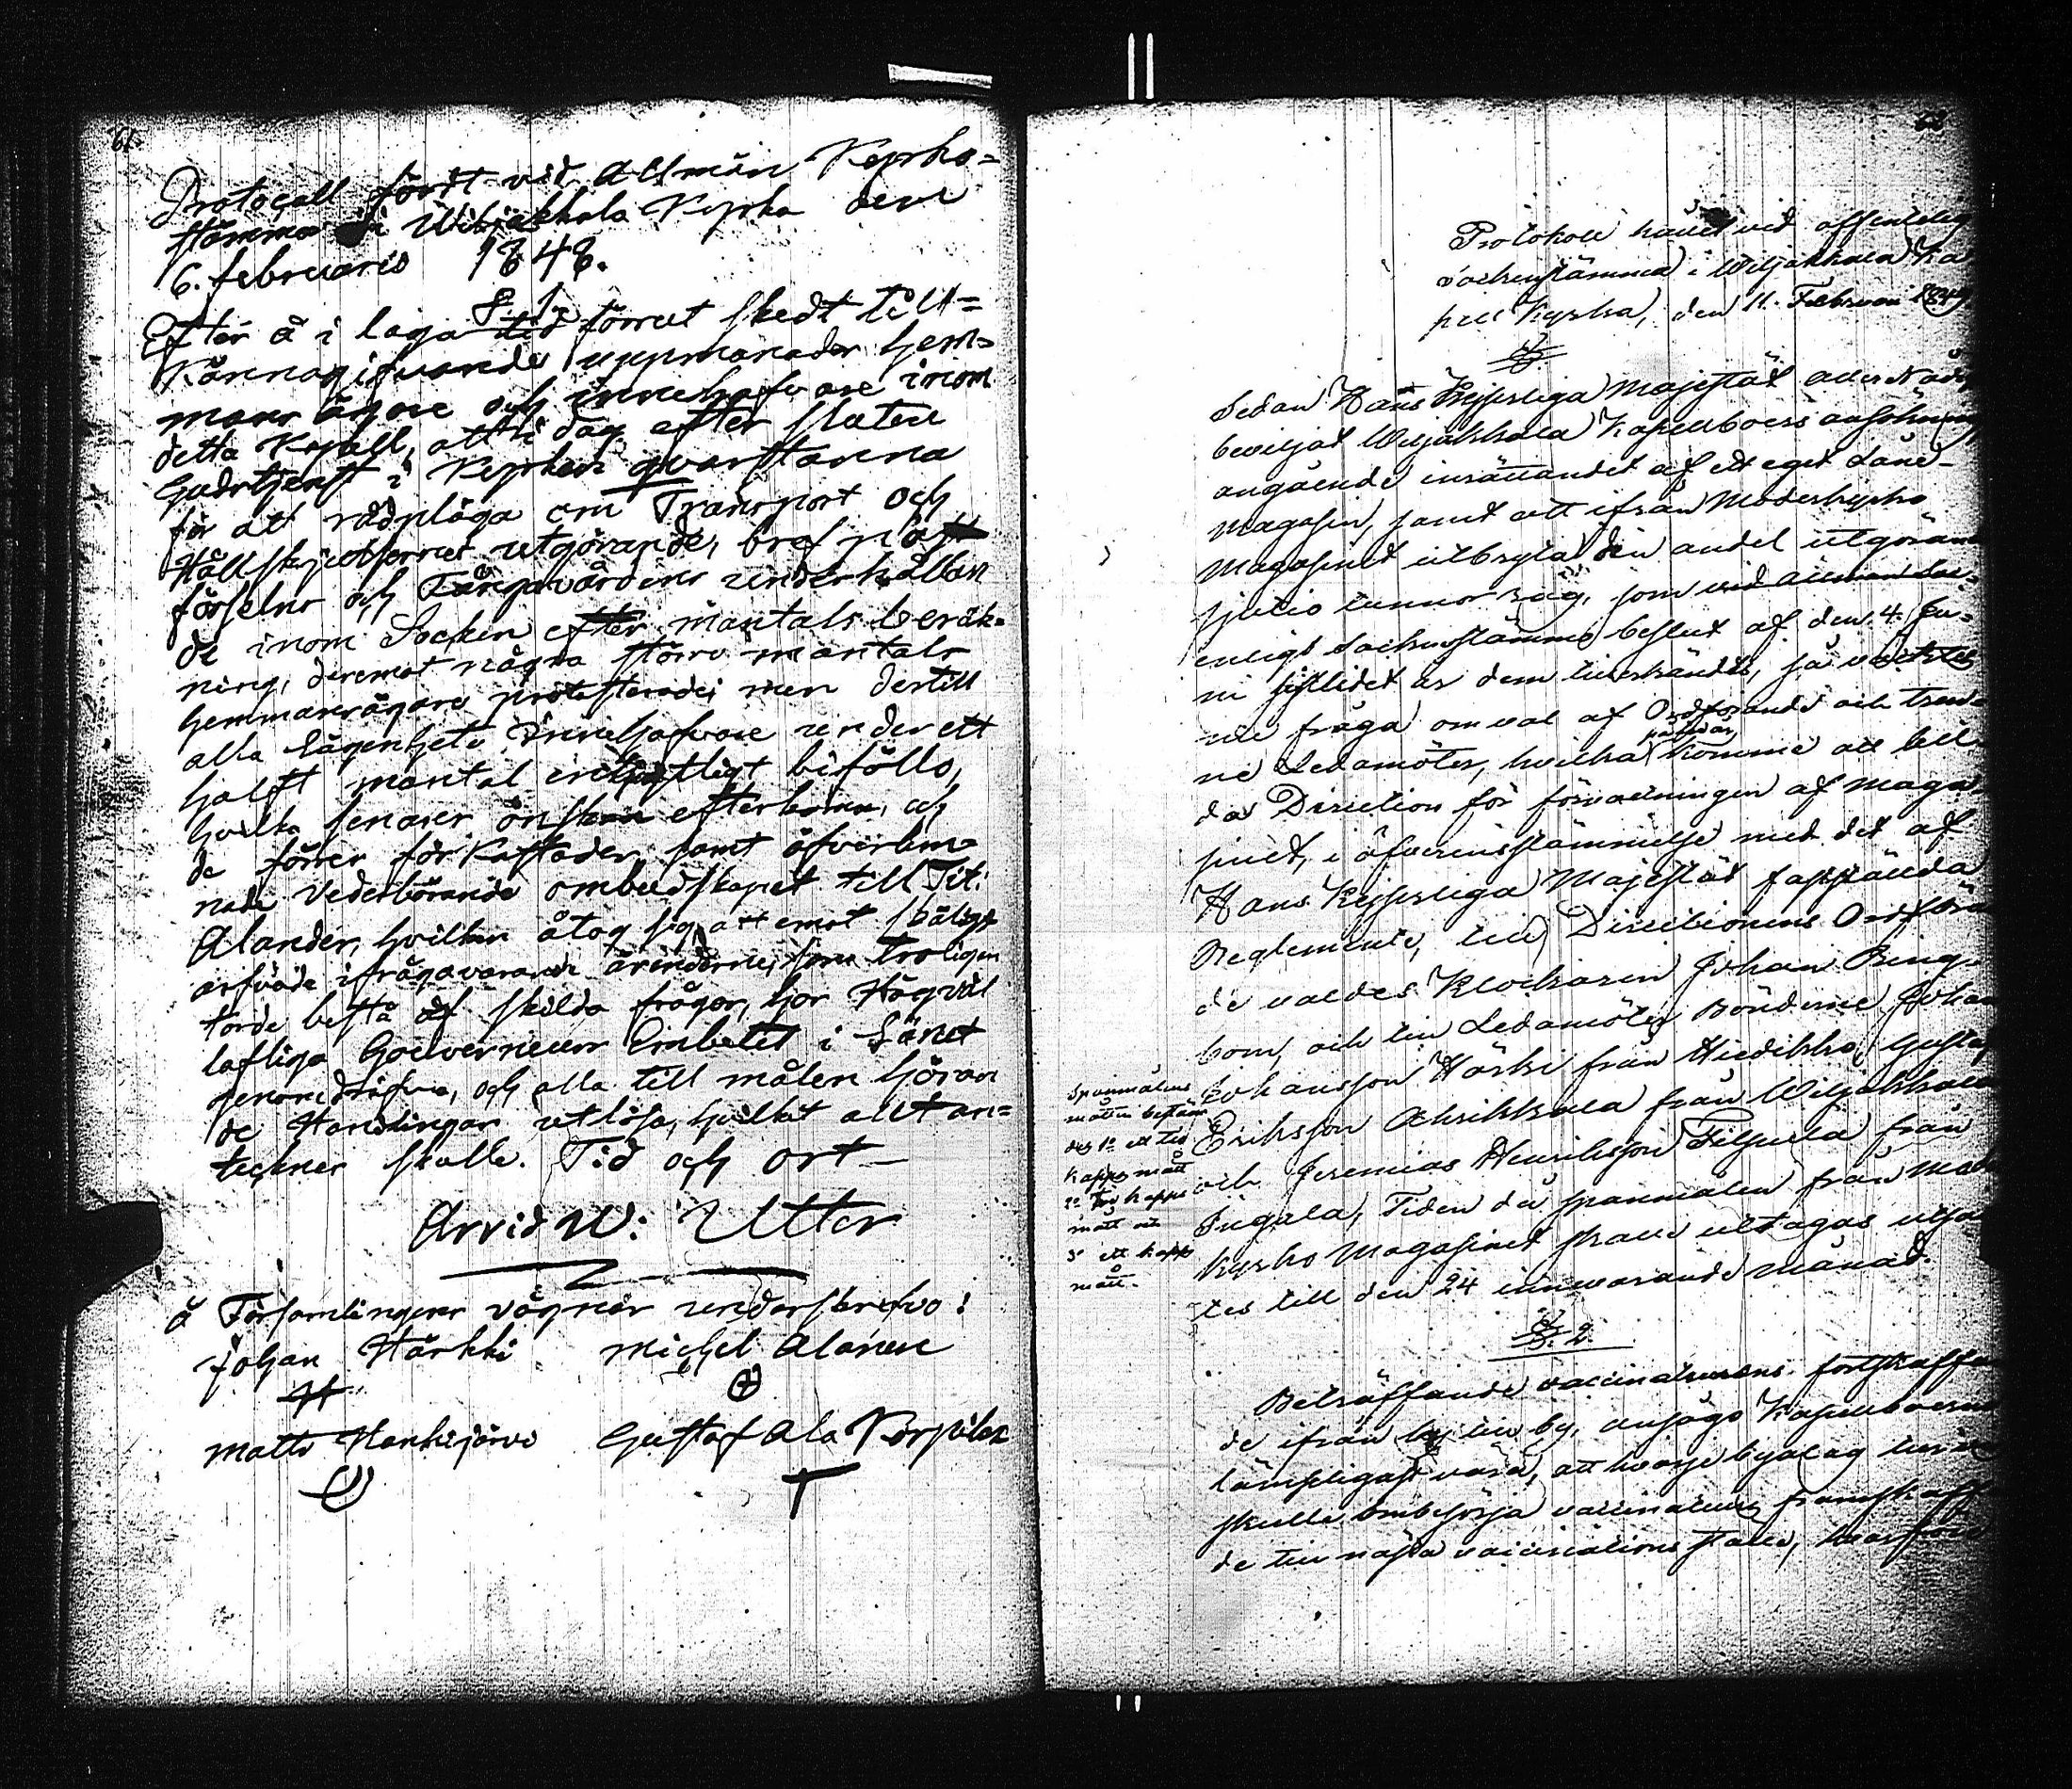 61.
Protocoll fördt vid Allmän Kyrko=
stämma i Wiljakkala Kyrka den
6. februarii 1848.
S. 1.
Efter å i laga tid förrut skedt till=
kännagifvande uppmanader hem=
mans ägare och innehafvare inom
detta Kapell, att i dag efter slutad
Gudstjenst i Kyrkan qvarstanna
för att rådpläga om Transport och
Hållskjutsernes utgörande, bref
förseln och Fångvården underhållan
de inom Socken efter mantals beräk=
ning, deremot några större mantals
hemmansägare protesterade, men dertill
alla Lägenhets Innehafvare under ett
halft mantal biföllo,
hvilka senares önskan efterkoms, och
de förres förkastades, samt öfverläm=
nade vederbörande ombudskapet till Tit:
Alander, hvilken åtog sig att emot skäligt
arfvode ifrågavarande ärenderne, som troligen
torde bestå af skilda frågor, hos Högväl
lofliga Gouverneurs Embetet i Länet
genomdrifva, och alla till målen höran
de Handlingar utlösa, hvilket allt an=
tecknas skulle. Tid och ort
Arvid W: Utter
å Församlingens vägnar underskrefvo:
Johan Härkki Michel Alanen
Matts Hankijärvi Gustaf Ala Kerpilä
62
Protokoll hållet vid offentelig
sockenstämma i Wiljakkala Ka
pell Kyrka, den 11. Februari 1849.
§.
Sedan Hans Kejserliga Majestät aller Nådi
beviljat Wiljakkala Kapellboers ansökning
angående inrättandet af ett eget Låne-
Magasin, samt att ifrån Moderkyrko
Magasinet utbryta den andel utgöran
sjutio tunnor råg, som vid allmän Soc=
enligt Sockenstämmo beslut af den 4. Ju=
ni sistlidet år dem tillerkändts, så väcktes
nu fråga om val af Ordförande och tven
ne Ledamöter, hvilka komme att bil
da Direction för förvaltningen af maga
sinet, i öfverensstämmelse med det af
Hans Kejserliga Majestät fastställda
Reglemente, till Directionens Ordföran
de valdes Klockaren Johan Ring
bom, och till Ledamöter Bönderne Johan
Johansson Härki från Hiedikko, Gustaf
Eriksson Ochrikkala från Wiljakkala
och Jeremias Henriksson Pilpula från
Inkula, Tiden då spannmålen från Moder
kyrko Magasinet skall uttagas utsat
tes till den 24 innevarande månad.
Spannmålens
mätten bestäm
des 1o ett tio
kapps mått
2o två kapps
mått och
3o ett kapps
mått.
§. 2.
Beträffande vaccinateurens fortskaffan
de ifrån by till by, ansågo Kapellboerne
lämpligast vara, att hvarje byalag
skulle ombesörja vaccinateurs framskaffan
de till nästa vaccinations ställe,